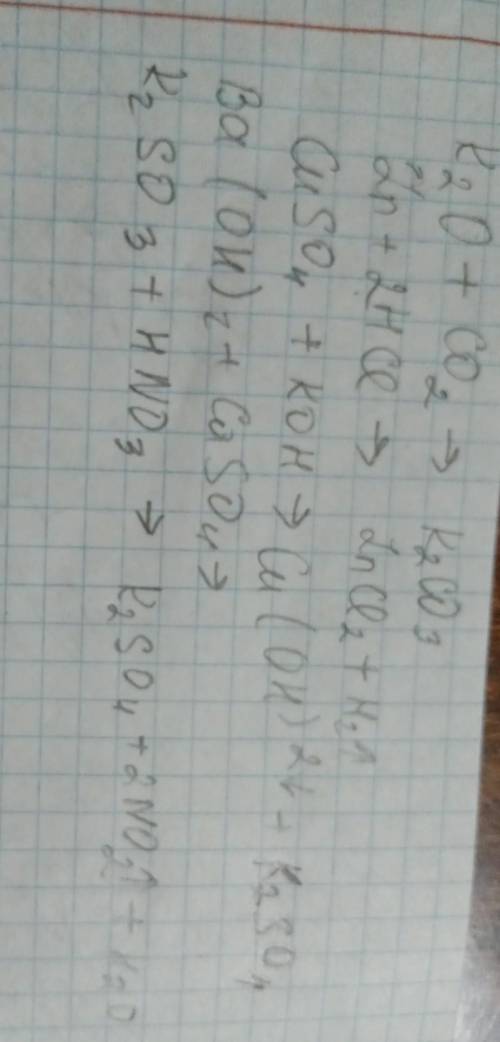 K₂O + CO₂ → K₂CO₃
Zn + 2HCl → ZnCl₂ + H₂↑
CuSO₄ + KOH → Cu(OH)₂↓ + K₂SO₄
Ba(OH)₂ + CuSO₄ →
K₂SO₃ + HNO₃ → K₂SO₄ + 2NO₂↑ + H₂O